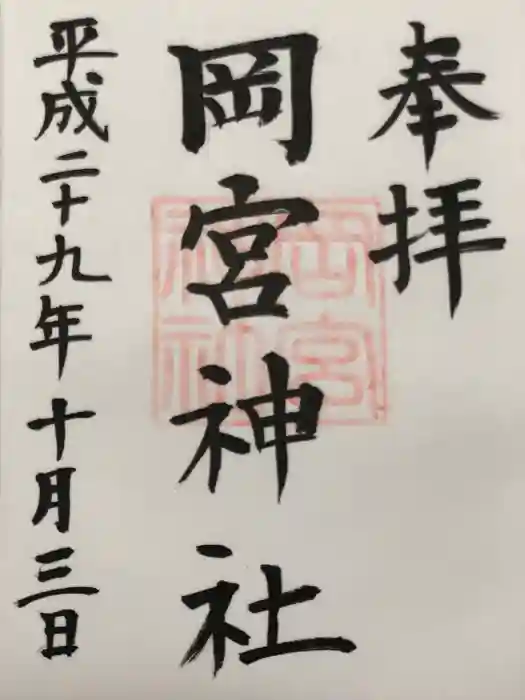 奉拝
岡宮神社
岡宮神社
平成二十九年十月三日